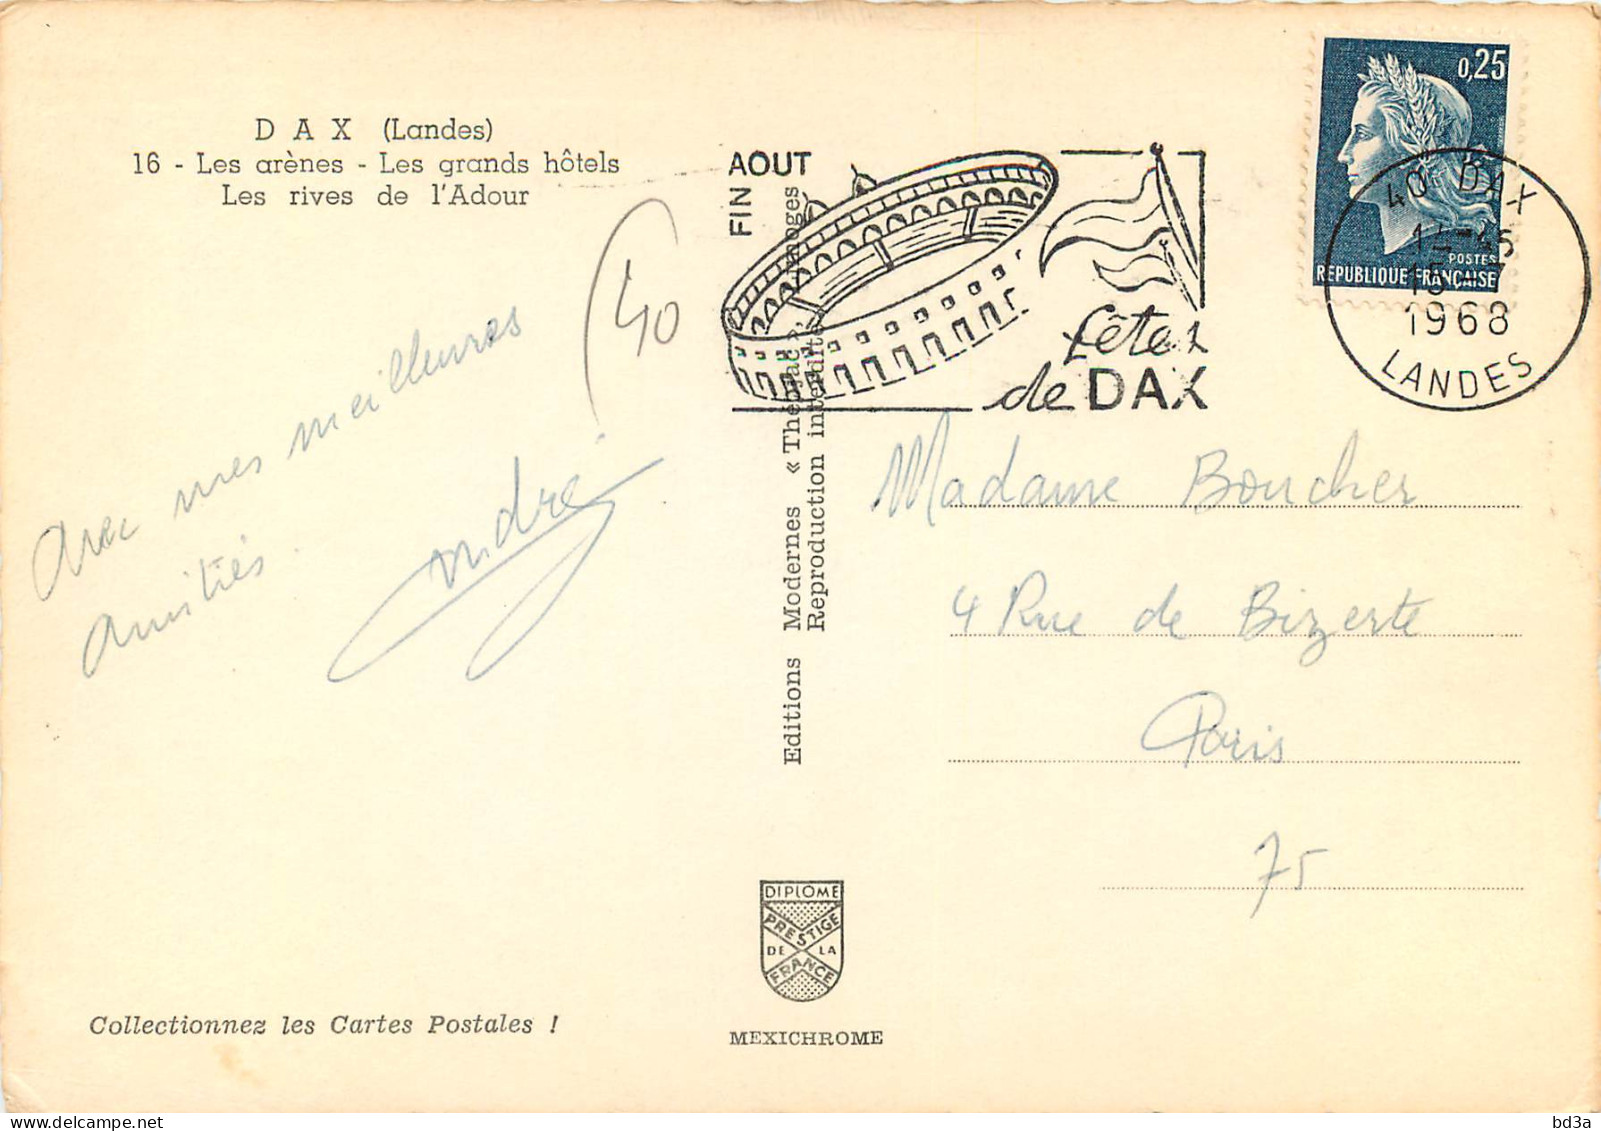 D A X (Landes)
16 - Les arènes - Les grands hôtels
Les rives de l'Adour
40
avec mes meilleures
amitiés.
André
Collectionnez les Cartes Postales !
Editions Modernes « Théojac », Limoges
Reproduction interdite
DIPLOME
PRESTIGE
DE LA
FRANCE
MEXICHROME
FIN AOUT
fêtes
de DAX
0,25
POSTES
REPUBLIQUE FRANÇAISE
40 DAX
14-45
15-7
1968
LANDES
Madame Boucher
4 Rue de Bizerte
Paris
75
bd3a